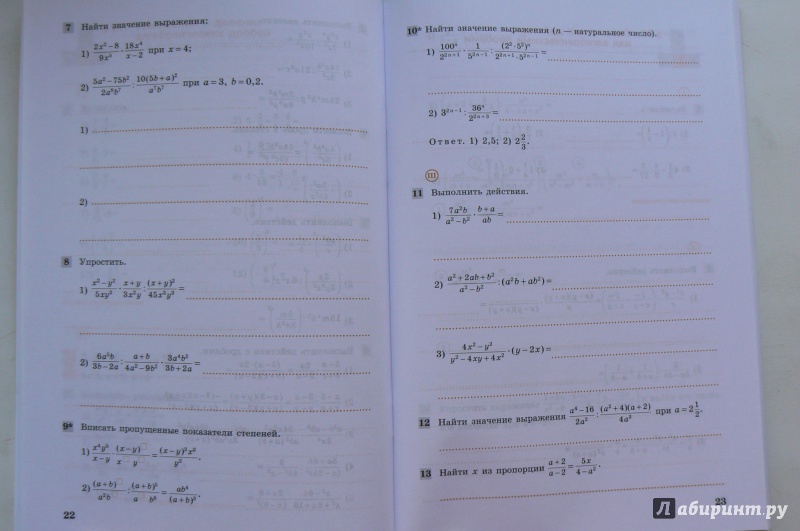 7 Найти значение выражения:
1) (2x² − 8)/(9x³) · (18x⁴)/(x − 2) при x = 4;
2) (5a² − 75b²)/(2a⁵b⁷) : (10(5b + a)²)/(a⁷b⁷) при a = 3, b = 0,2.
1)
2)
8 Упростить.
1) (x² − y²)/(5xy²) · (x + y)/(3x²y) : (x + y)²/(45x³y³) =
2) (6a⁵b)/(3b − 2a) : (a + b)/(4a² − 9b²) · (3a⁴b²)/(3b + 2a) =
9* Вписать пропущенные показатели степеней.
1) (x⁴y⁵)/(x − y) · (x − y)/(x y) = ((x − y)²x²)/(y²).
2) (a + b)/(a²b) : (a + b)⁵/(a b⁵) = (ab⁴)/((a + b)²).
22
10* Найти значение выражения (n — натуральное число).
1) 100ⁿ/2²ⁿ⁺¹ · 1/5²ⁿ⁻¹ : (2² · 5²)ⁿ/(2²ⁿ⁺¹ · 5²ⁿ⁻¹) =
2) 3²ⁿ⁻¹ : 36ⁿ/2²ⁿ⁺³ =
Ответ. 1) 2,5; 2) 2 2/3.
III
11 Выполнить действия.
1) (7a²b)/(a² − b²) · (b + a)/(ab) =
2) (a² + 2ab + b²)/(a² − b²) : (a²b + ab²) =
3) (4x² − y²)/(y² − 4xy + 4x²) · (y − 2x) =
12 Найти значение выражения (a⁴ − 16)/(2a²) : ((a² + 4)(a + 2))/(4a²) при a = 2 1/2.
13 Найти x из пропорции (a + 2)/(a − 2) = 5x/(4 − a²).
23
Лабиринт.ру